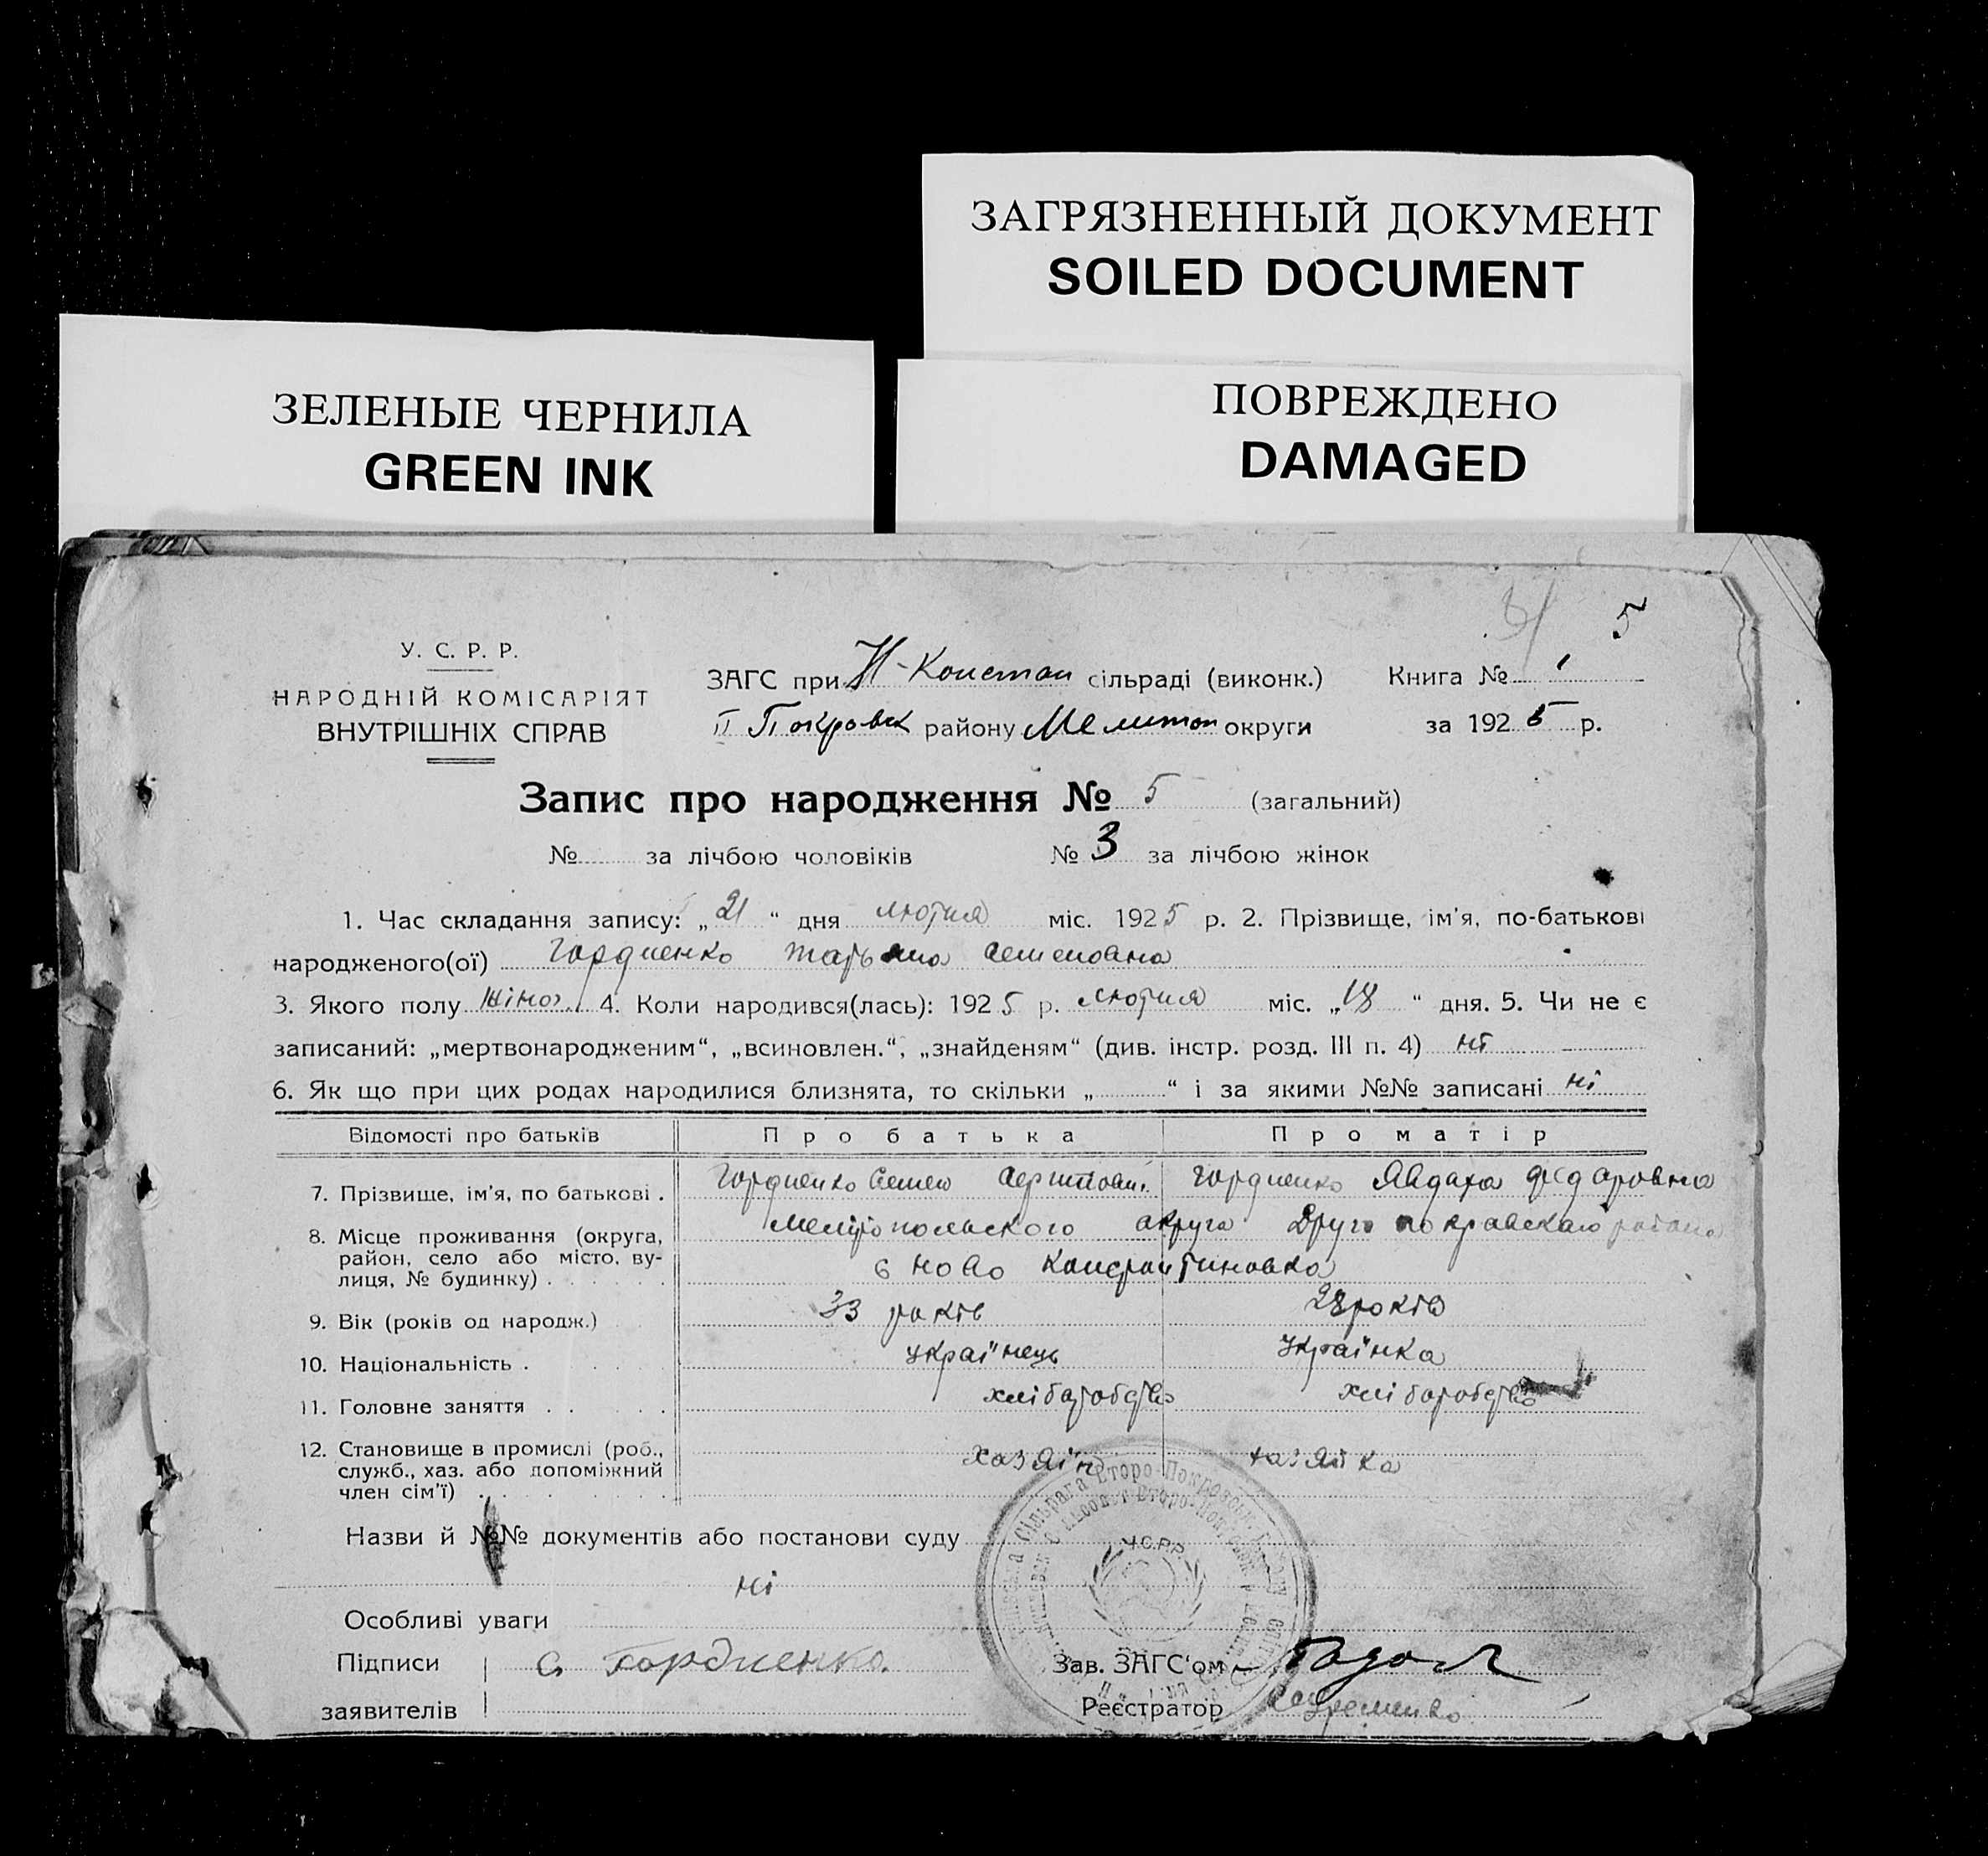 ЗАГРЯЗНЕННЫЙ ДОКУМЕНТ
SOILED DOCUMENT
ЗЕЛЕНЫЕ ЧЕРНИЛА
GREEN INK
ПОВРЕЖДЕНО
DAMAGED
5
У. С. Р. Р.
НАРОДНІЙ КОМІСАРІЯТ
ВНУТРІШНІХ СПРАВ
ЗАГС при Н-Констан сільраді (виконк.) Книга № 1
II Покровск району Мелитоп округи за 1925 р.
Запис про народження № 5 (загальний)
№ за лічбою чоловіків № 3 за лічбою жінок
1. Час складання запису: „21“ дня лютня міс. 1925 р. 2. Прізвище, ім'я, по-батькові
народженого(ої) Гордиенко Татьяна Семеновна
3. Якого полу жіноч. 4. Коли народився(лась): 1925 р. лютня міс. „18“ дня. 5. Чи не є
записаний: „мертвонародженим“, „всиновлен.“, „знайденям“ (див. інстр. розд. III п. 4) ні
6. Як що при цих родах народилися близнята, то скільки „ “ і за якими №№ записані ні
Відомості про батьків Про батька Про матір
7. Прізвище, ім'я, по батькові . Гордиенко Семен Гордиенко Явдаха Федаровна
8. Місце проживання (округа, район, село або місто, вулиця, № будинку) Мелітопольского акруга Друго покравскаго района
с Ново Константиновка
9. Вік (років од народж.) 33 років 28 років
10. Національність . українець українка
11. Головне заняття . . хліборобство хліборобство
12. Становище в промислі (роб., служб., хаз. або допоміжний член сім'ї) хазяін хазяйка
Назви й №№ документів або постанови суду
ні
Особливі уваги
У.С.Р.Р.
Підписи С Гордиенко. Зав. ЗАГС'ом
заявителів Реєстратор